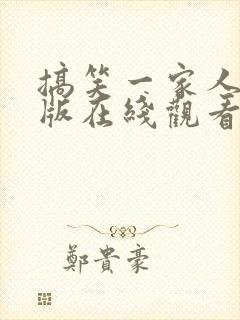 搞笑一家人
版在綫觀看
鄭貴豪